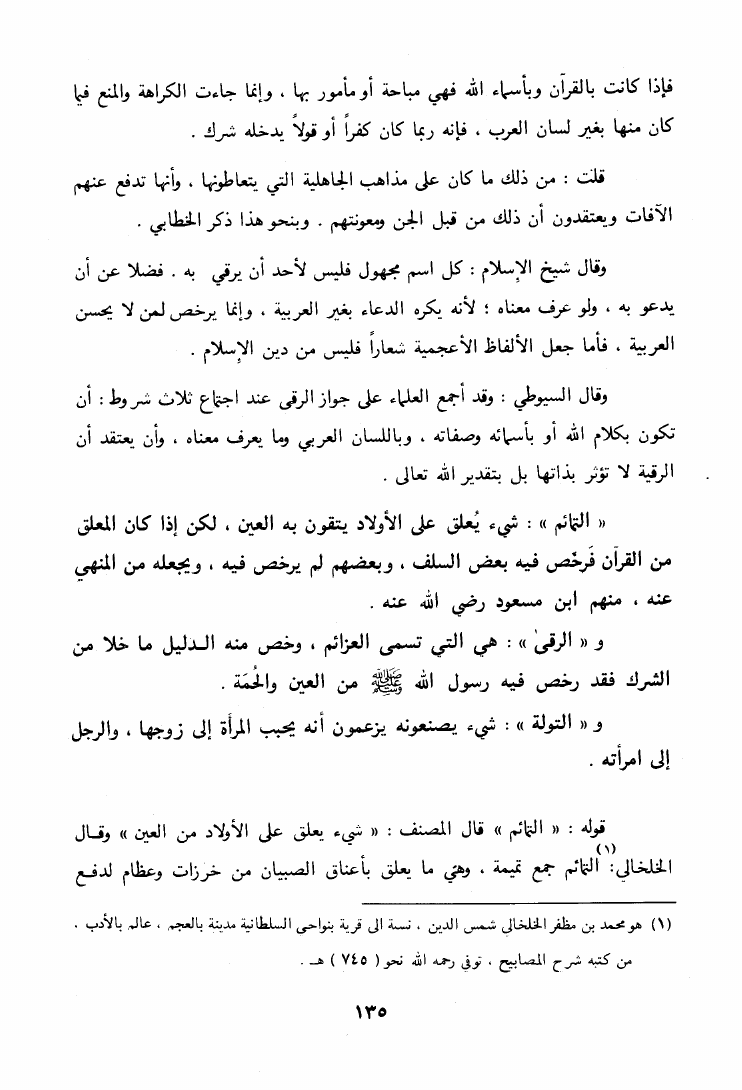 فإذا كانت بالقرآن وبأسماء الله فهي مباحة أو مأمور بها ، وإنما جاءت الكراهة والمنع فيما
كان منها بغير لسان العرب ، فإنه ربما كان كفراً أو قولاً يدخله شرك .
قلت : من ذلك ما كان على مذاهب الجاهلية التي يتعاطونها ، وأنها تدفع عنهم
الآفات ويعتقدون أن ذلك من قبل الجن ومعونتهم . وبنحو هذا ذكر الخطابي .
وقال شيخ الإسلام : كل اسم مجهول فليس لأحد أن يرقي به . فضلا عن أن
يدعو به ، ولو عرف معناه ؛ لأنه يكره الدعاء بغير العربية ، وإنما يرخص لمن لا يحسن
العربية ، فأما جعل الألفاظ الأعجمية شعاراً فليس من دين الإسلام .
وقال السيوطي : وقد أجمع العلماء على جواز الرقى عند اجتماع ثلاث شروط : أن
تكون بكلام الله أو بأسمائه وصفاته ، وباللسان العربي وما يعرف معناه ، وأن يعتقد أن
الرقية لا تؤثر بذاتها بل بتقدير الله تعالى .
« التمائم » : شيء يُعلق على الأولاد يتقون به العين ، لكن إذا كان المعلق
من القرآن فَرخّص فيه بعض السلف ، وبعضهم لم يرخص فيه ، ويجعله من المنهي
عنه ، منهم ابن مسعود رضي الله عنه .
و « الرقىٰ » : هي التي تسمى العزائم ، وخص منه الدليل ما خلا من
الشرك فقد رخص فيه رسول الله ﷺ من العين والحُمَة .
و « التولة » : شيء يصنعونه يزعمون أنه يحبب المرأة إلى زوجها ، والرجل
إلى امرأته .
قوله : « التمائم » قال المصنف : « شيء يعلق على الأولاد من العين » وقال
الخلخالي(١): التمائم جمع تميمة ، وهي ما يعلق بأعناق الصبيان من خرزات وعظام لدفع
(١) هو محمد بن مظفر الخلخالي شمس الدين ، نسة الى قرية بنواحى السلطانية مدينة بالعجم ، عالم بالأدب ،
من كتبه شرح المصابيح ، توفي رحمه الله نحو ( ٧٤٥ ) هـ .
١٣٥